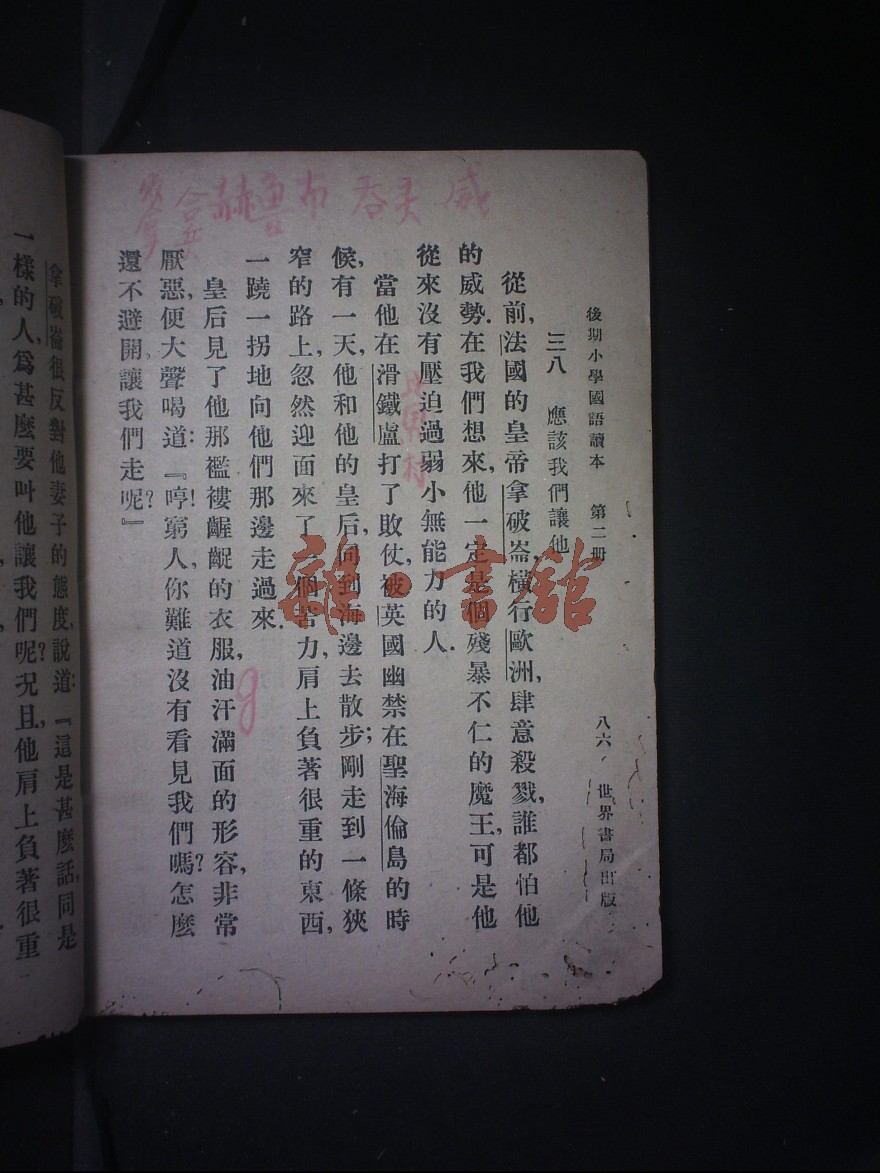 後期小學國語讀本 第二冊 八六 世界書局出版
三八 應該我們讓他
從前,法國的皇帝拿破崙,橫行歐洲,肆意殺戮,誰都怕他
的威勢.在我們想來,他一定是個殘暴不仁的魔王,可是他
從來沒有壓迫過弱小無能力的人.
當他在滑鐵盧打了敗仗,被英國幽禁在聖海倫島的時
候,有一天,他和他的皇后,同到海邊去散步;剛走到一條狹
窄的路上,忽然迎面來了一個苦力,肩上負著很重的東西,
一蹺一拐地向他們那邊走過來.
皇后見了他那襤褸齷齪的衣服,油汗滿面的形容,非常
厭惡,便大聲喝道:『哼!窮人,你難道沒有看見我們嗎?怎麼
還不避開,讓我們走呢?』
拿破崙很反對他妻子的態度,說道:『這是甚麼話,同是
一樣的人,爲甚麼要叫他讓我們呢?況且,他肩上負著很重
威 灵 吞 布 魯 赫
村
g
雜·書館